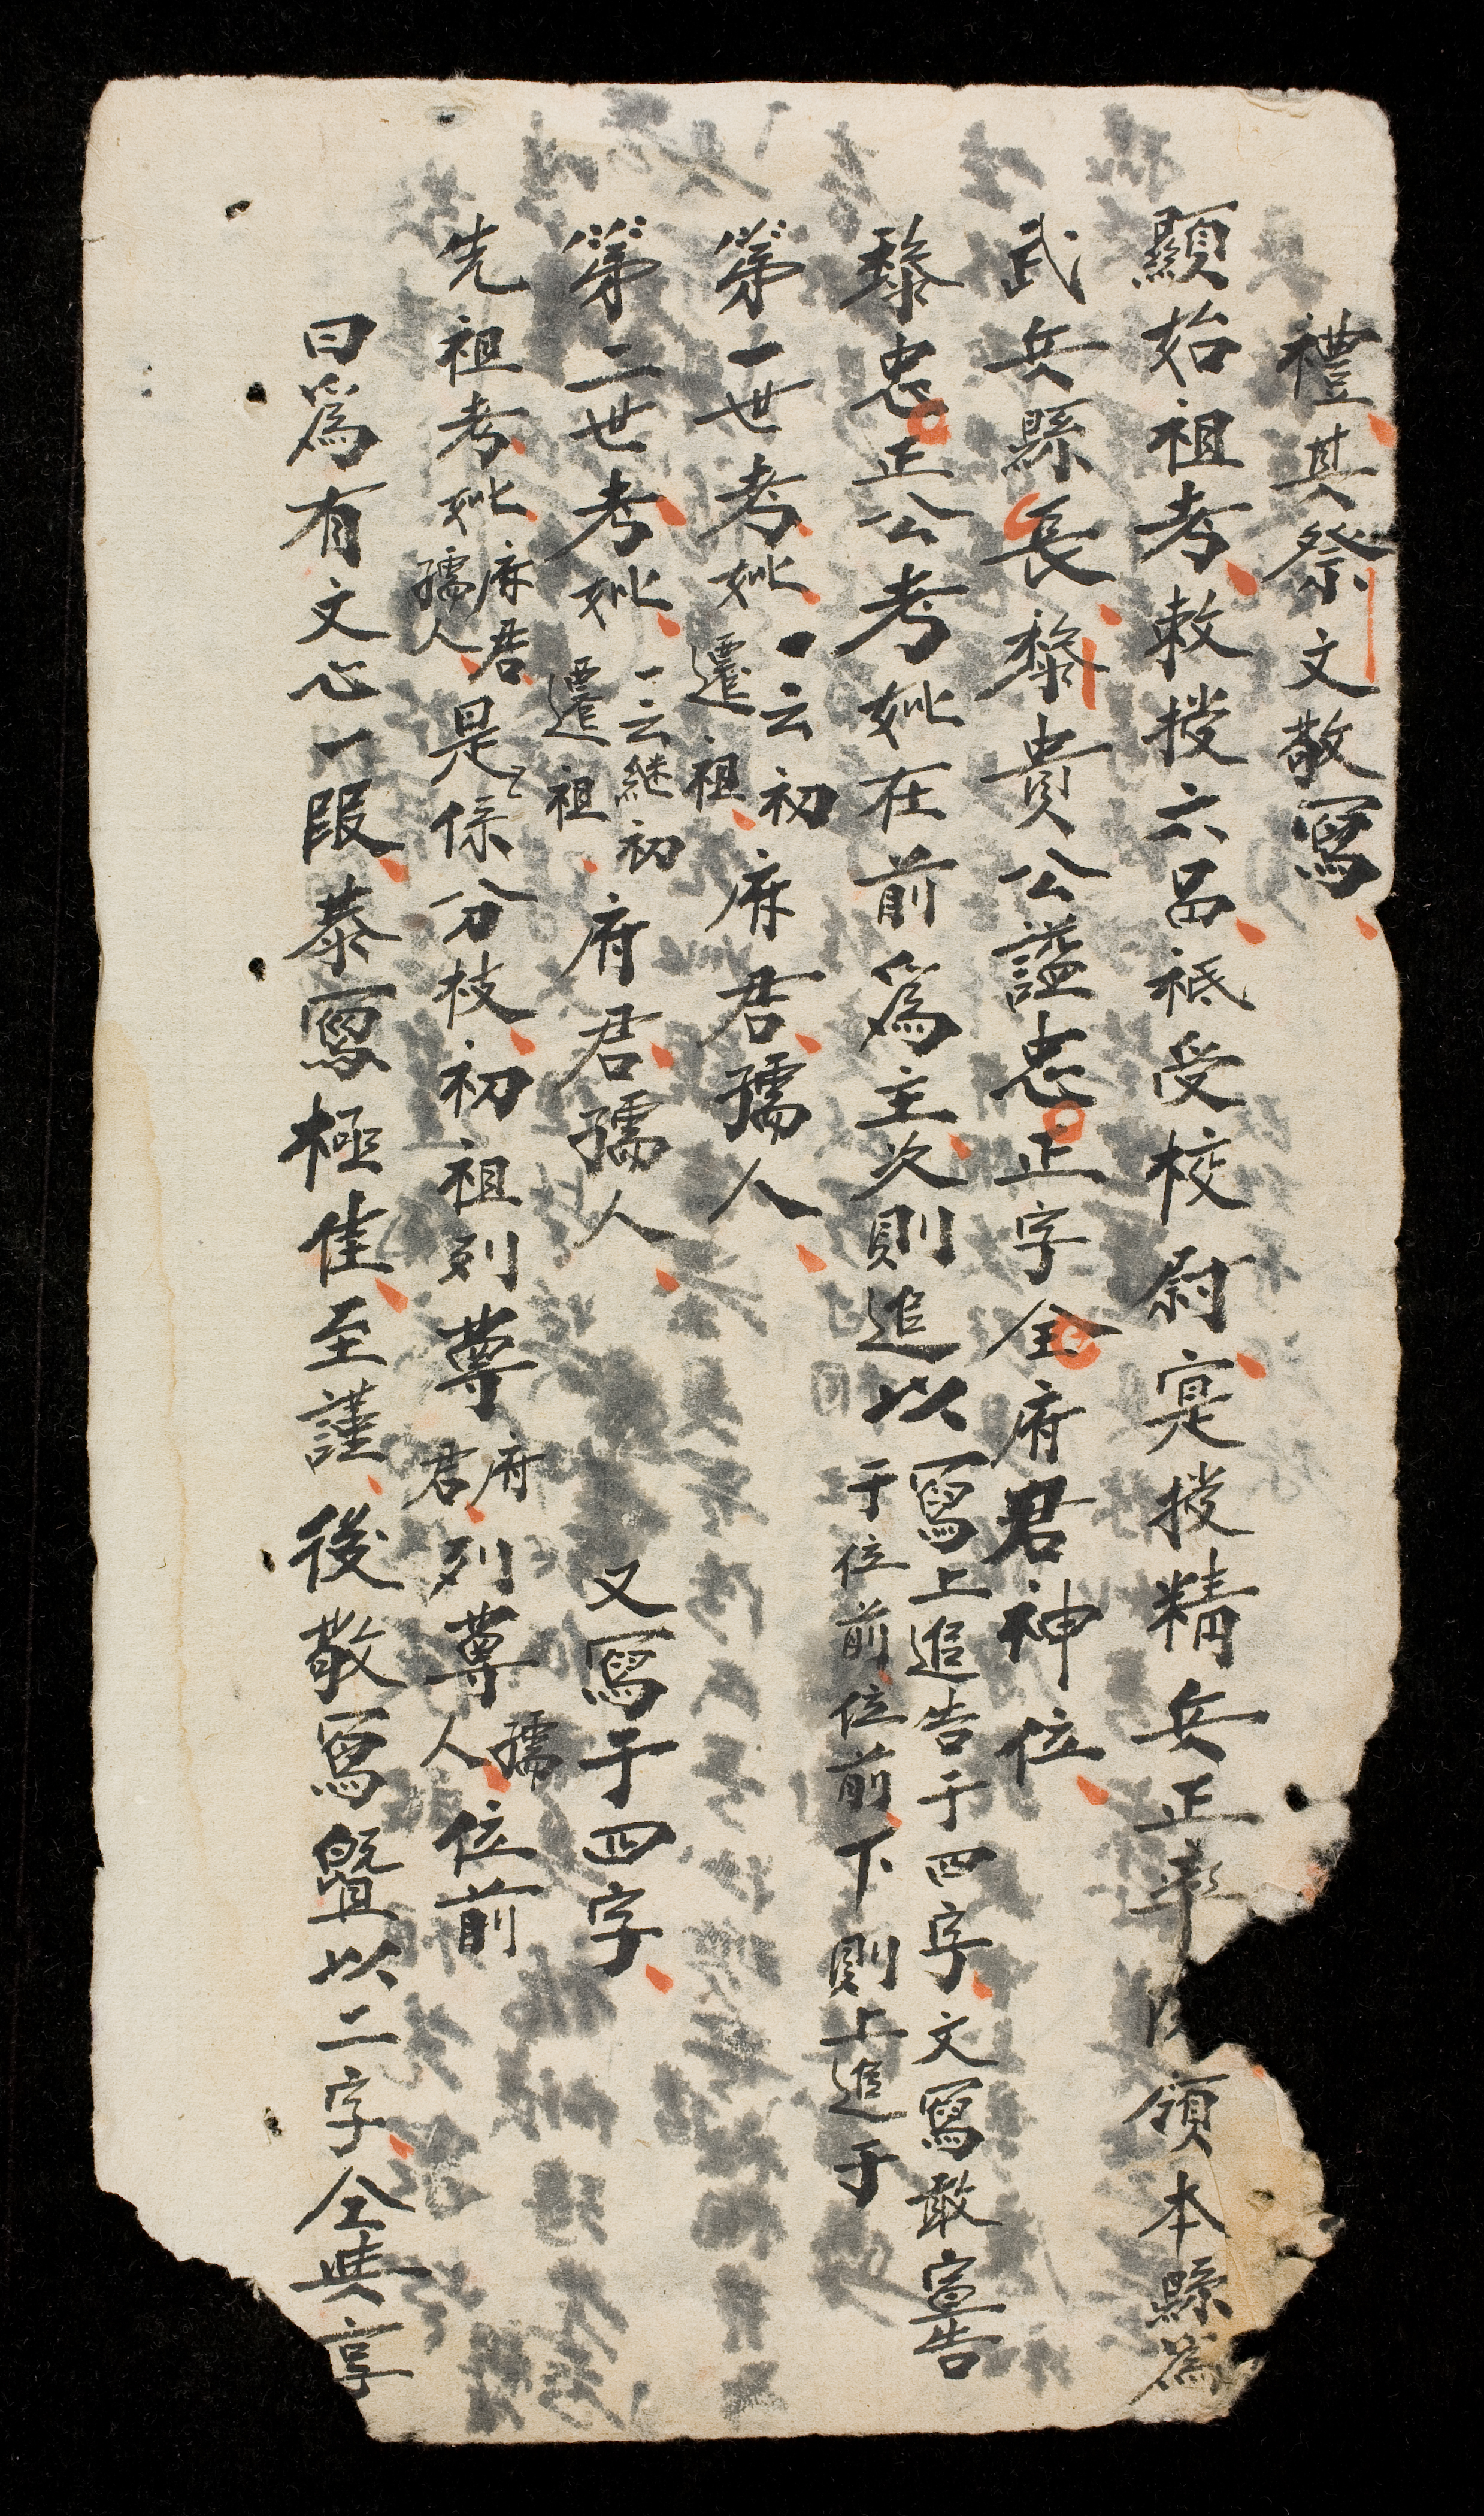 禮其祭文敬寫
顯始祖考敕授六品祗受校尉寔授精兵正率領本縣為
武兵縣長黎貴公謚忠正字仝府君神位
黎忠正公考妣在前為主次則追以寫上追告于四字文寫敢宣告
于位前位前下則上追于
第一世考妣一云初
遷祖府君孺人
第二世考妣一云継初
遷祖府君孺人 又寫于四字
先祖考妣府君孺人是係分枝初祖列尊府君列尊孺人位前
曰為有文心一段恭寫極佳至謹後敬寫暨以二字仝典享